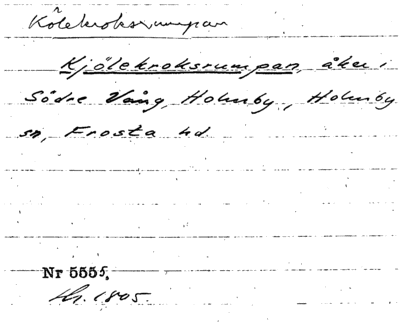 Kölekroksrumpan
Kjölekroksrumpan, åker i
Södre Vång, Holmby, Holmby
sn, Frosta hd
Nr 5555.
1805.